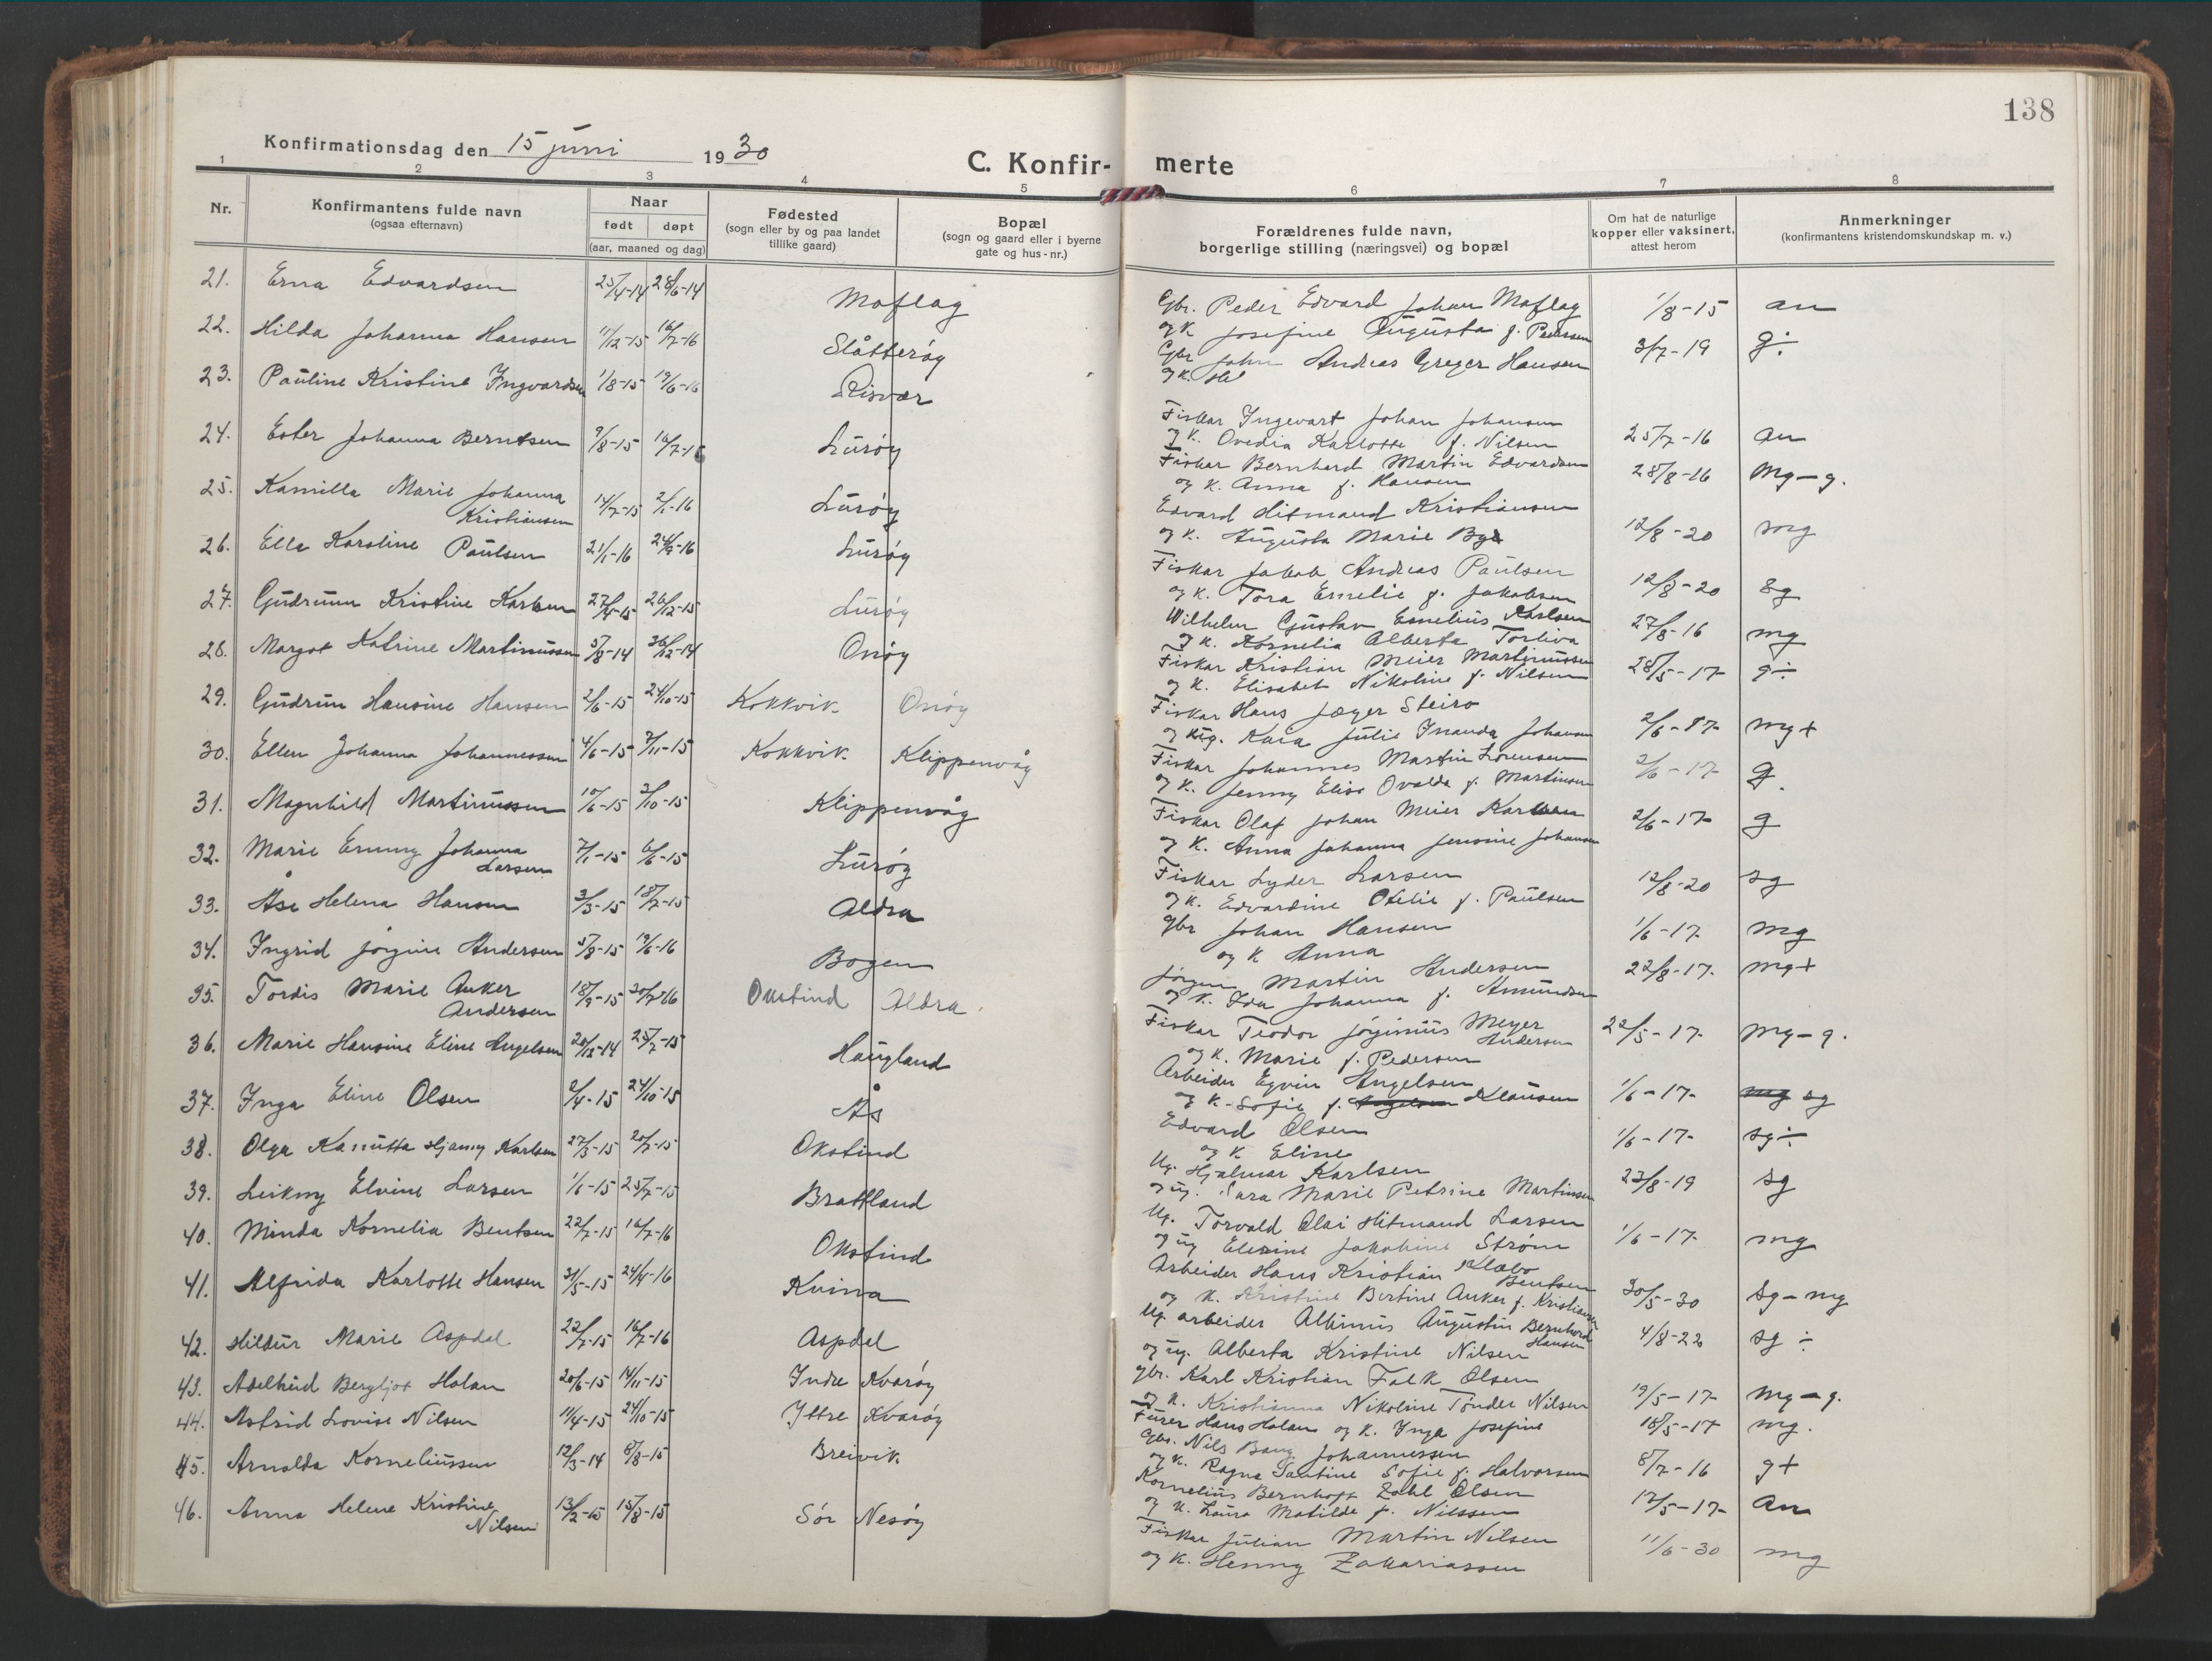 138
Konfirmationsdag den 15 juni 1930
C. Konfir- merte
1 2 3 4 5 6 7 8
Nr.
Konfirmantens fulde navn
(ogsaa efternavn)
Naar
født døpt
(aar, maaned og dag)
Fødested
(sogn eller by og paa landet
tillike gaard)
Bopæl
(sogn og gaard eller i byerne
gate og hus-nr.)
Forældrenes fulde navn,
borgerlige stilling (næringsvei) og bopæl
Om hat de naturlige
kopper eller vaksinert,
attest herom
Anmerkninger
(konfirmantens kristendomskundskap m. v.)
21. Erna Edvardsen 25/4-14 28/6-14 Moflag
Gbr. Peder Edvard Johan Moflag 1/8-15 an
og K Josefine Augusta f. Pedersen
22. Hilda Johanna Hansen 11/12-15 16/7-16 Slåtterøy
Gbr John Andreas Greger Hansen 3/7-19 g÷
og K.
23. Pauline Kristine Ingvardsen 1/8-15 19/6-16 Risvær
Fiskar Ingevart Johan Johansen
og K. Ovedia Karlotte f. Nilsen 25/7-16 an
24. Ester Johanna Berntsen 9/8-15 16/7-16 Lurøy
Fiskar Bernhard Martin Edvardsen 28/8-16 mg-g.
og K. Anna f. Hansen
25. Kamilla Marie Johanna
Kristiansen 14/7-15 2/1-16 Lurøy
Edvard Hitmand Kristiansen
og K. Augusta Marie 12/8-20 mg
26. Ella Karoline Paulsen 21/1-16 24/4-16 Lurøy
Fiskar Jakob Andreas Paulsen
og K. Tora Emelie f. Jakobsen 12/8-20 sg
27. Gudrunn Kristine Karlsen 27/4-15 26/12-15 Lurøy
Wilhelm Gustav Emelius Karlsen 27/8-16 mg
og K. Kornelia Alberta Torliva
28. Margot Katrine Martinussen 5/8-14 26/12-14 Onøy
Fiskar Kristian Meier Martinussen 28/5-17 g÷
og K. Elisabet Nikoline f. Nilsen
29. Gudrun Hansine Hansen 2/6-15 24/10-15 Kokkvik. Onøy
Fiskar Hans Jæger Steiro
og Kig. Kaia Julie Inanda Johansen 2/6-17 mg+
30. Ellen Johanna Johannessen 4/6-15 7/11-15 Kokkvik. Klippenvåg
Fiskar Johannes Martin Lorensen 2/6-17 g.
og K. Jenny Elise Ovalda f. Martinsen
31. Magnhild Martinussen 10/6-15 3/10-15 Klippenvåg
Fiskar Olaf Johan Meier Karlsen 2/6-17 g
og K. Anna Johanna Jensine Johansen
32. Marie Emmy Johanna
Larsen 7/1-15 6/6-15 Lurøy
Fiskar Lyder Larsen 12/8-20 sg
og K. Edvardine Otelie f. Paulsen
33. Åse Helena Hansen 3/3-15 18/7-15 Aldra
gbr Johan Hansen 1/6-17 mg
og K Anna
34. Ingrid Jørgine Andersen 5/8-15 19/6-16 Bogen
Jørgen Martin Andersen 22/8-17. mg+
og K. Ida Johanna f. Amundsen
35. Tordis Marie Anker
Andersen 18/9-15 20/7-16 Okstind Aldra.
Fiskar Teodor Jørginius Meyer
Andersen 22/5-17 mg-g.
og K. Marie f. Pedersen
36. Marie Hansine Eline Angelsen 20/12-14 25/7-15 Haugland
Arbeider Egvin Angelsen
og K. Sofie f. Klausen 1/6-17 mg sg
37. Inga Eline Olsen 2/4-15 24/10-15 Ås
Edvard Olsen 1/6-17 sg÷
og K Eline
38. Olga Kanutta Hjamy Karlsen 27/3-15 20/7-15 Okstind
Ug. Hjalmar Karlsen 23/8-19 sg
og ug. Sara Marie Petrine Martinsen
39. Leikny Elvine Larsen 1/6-15 25/7-15 Brattland
Ug. Torvald Olai Hitmand Larsen 1/6-17 mg
og ug Elesine Jakobine Strøm
40. Minda Kornelia Bentsen 22/7-15 16/7-16 Okstind
Arbeider Hans Kristian Klæbo
Bentsen 30/5-30 sg-mg
og K. Kristine Bertine Anker f. Kristiansen
41. Alfrida Karlotte Hansen 31/5-15 24/4-16 Kvina
Ug. arbeider Albinus Augustin Bernhard
Hansen 4/8-22 sg÷
og ug. Alberta Kristine Nilsen
42. Hildur Marie Aspdal 22/7-15 16/7-16 Aspdal
gbr. Karl Kristian Falk Olsen
og K. Kristianna Nikoline Tønder Nilsen 19/5-17 mg-g.
43. Adelheid Bergljot Holan 20/6-15 14/11-15 Indre Kvarøy
Furer Hans Holan og K. Inga Josefine 18/5-17 mg.
44. Astrid Lovise Nilsen 11/4-15 24/10-15 Yttre Kvarøy
Gbr. Nils Bang Johannessen
og K. Ragna Santine Sofie f. Halvorsen 8/7-16 g+
45. Arnolda Korneliussen 12/3-14 8/8-15 Breivik.
Kornelius Bernhoft Zahl Olsen
og K. Laura Matilde f. Nilssen 12/5-17 an
46. Anna Helene Kristine
Nilsen 13/2-15 15/8-15 Sør Nesøy
Fiskar Julian Martin Nilsen
og K. Henny Zakariassen 11/6-30 mg